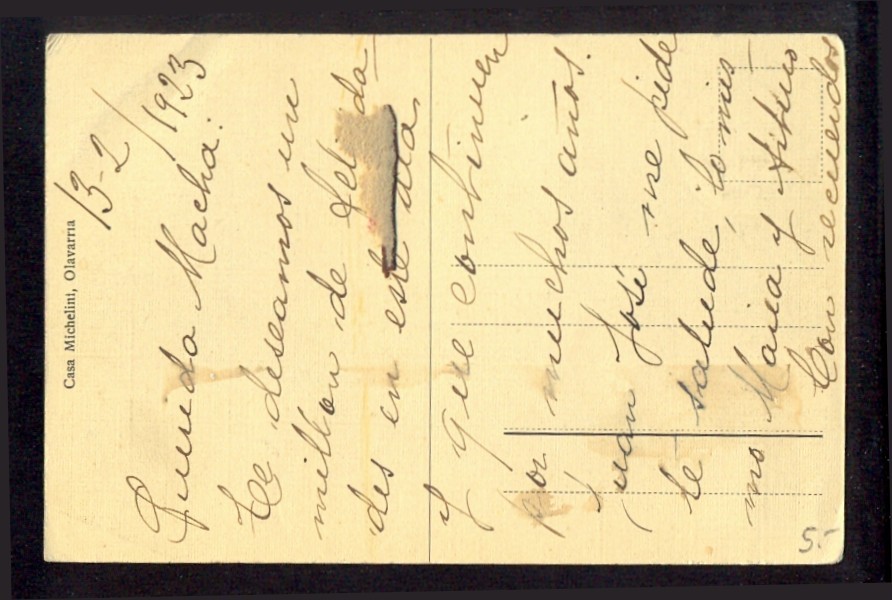 Casa Michelini, Olavarria
13-2/1923
Querida Macha:
Te deseamos un
millon de felicida
des en este dia.
y que continuen
por muchos años.
Juan José me pide
te salude, lo mis
mo Maria y
Con recuerdos
5.-